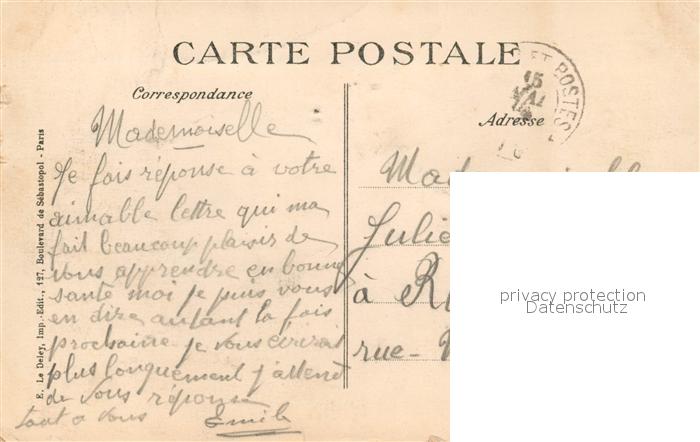 CARTE POSTALE
ET POSTES
15
Correspondance
Adresse
Mademoiselle
Je fais réponse à votre
aimable lettre qui ma
fait beaucoup plaisir de
vous apprendre en bonne
santé moi je puis vous
en dire autant la fois
prochaine je vous écrirai
plus longuement j'attend
de vous réponse
tout a vous Emile
Julie
à R
rue
privacy protection
Datenschutz
E. Le Deley, Imp.-Edit., 127, Boulevard de Sébastopol - Paris